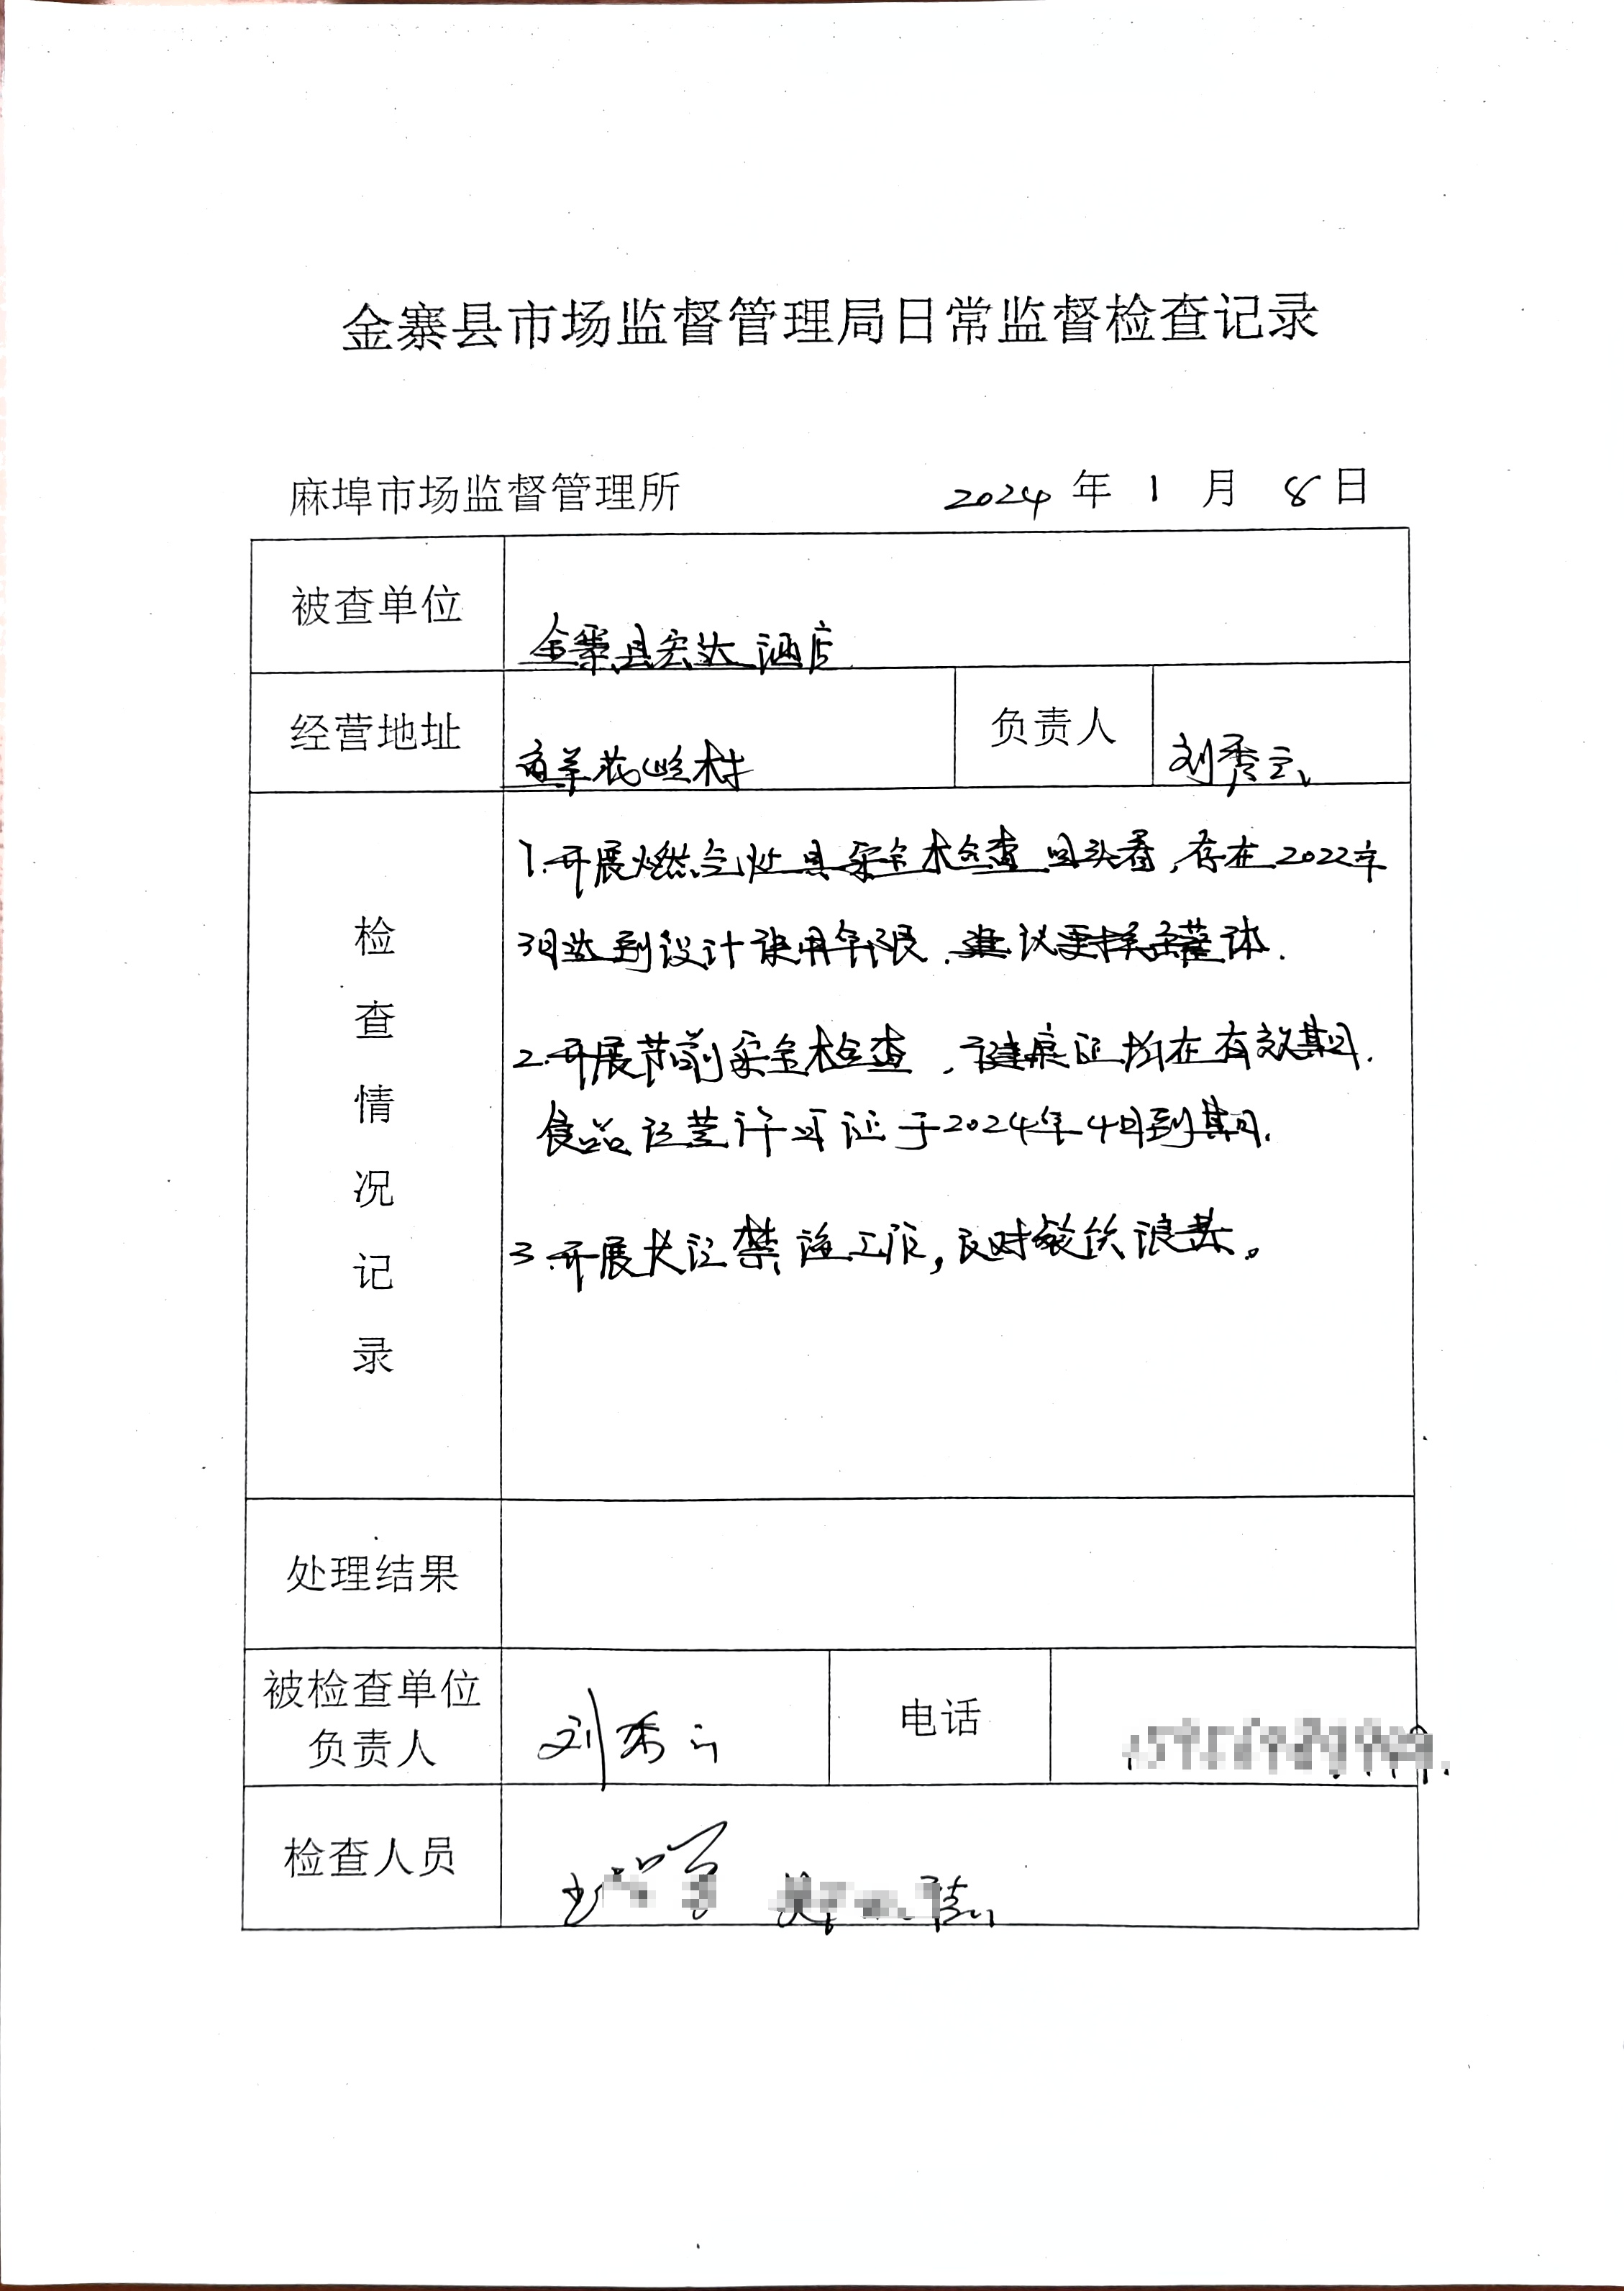 金寨县市场监督管理局日常监督检查记录
麻埠市场监督管理所 2024 年 1 月 8 日
被查单位 金寨县宏达酒店
经营地址 花 村 负责人 刘秀云
检查情况记录
1.开展燃气灶具安全检查回头看,存在2022年
3月达到设计使用年限.建议更换罐体.
2.开展节前安全检查,健康证均在有效期.
食品经营许可证于2024年4月到期.
3.开展长江禁渔工作,反对餐饮浪费。
处理结果
被检查单位
负责人 刘秀云 电话
检查人员